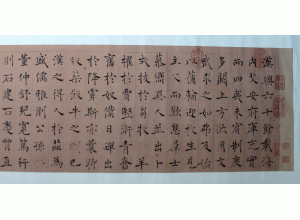 漢興六十餘載海
內艾安府庫充實
而四夷未賓制度
多闕上方欲用文
武求之如弗及始
以蒲輪迎枚生見
主父而歎息羣士
慕嚮異人並出卜
式拔於芻牧羊
擢於賈豎衛青
奮於奴僕日磾出
於降虜斯亦曩時
版築飯牛之朋已
漢之得人於茲為
盛儒雅則公孫
董仲舒兒寬篤行
則石建石慶質直